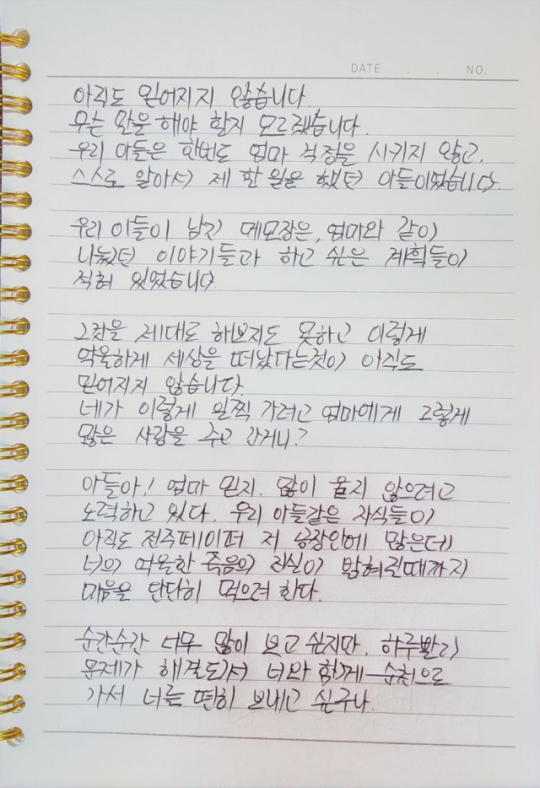 DATE . . NO.
아직도 믿어지지 않습니다.
무슨 말을 해야 할지 모르겠습니다.
우리 아들은 한번도 엄마 걱정을 시키지 않고,
스스로 알아서 제 할 일을 했던 아들이였습니다
우리 아들이 남긴 메모장은, 엄마와 같이
나눴던 이야기들과 하고 싶은 계획들이
적혀 있었습니다
그것을 제대로 해보지도 못하고 이렇게
억울하게 세상을 떠났다는것이 아직도
믿어지지 않습니다.
네가 이렇게 일찍 가려고 엄마에게 그렇게
많은 사랑을 주고 간거니?
아들아! 엄마 믿지. 많이 울지 않으려고
노력하고 있다. 우리 아들같은 자식들이
아직도 전주페이퍼 저 공장안에 많은데
너의 억울한 죽음의 진실이 밝혀질때까지
마음을 단단히 먹으려 한다.
순간순간 너무 많이 보고 싶지만, 하루빨리
문제가 해결되서 너와 함께 순천으로
가서 너를 편히 보내고 싶구나.